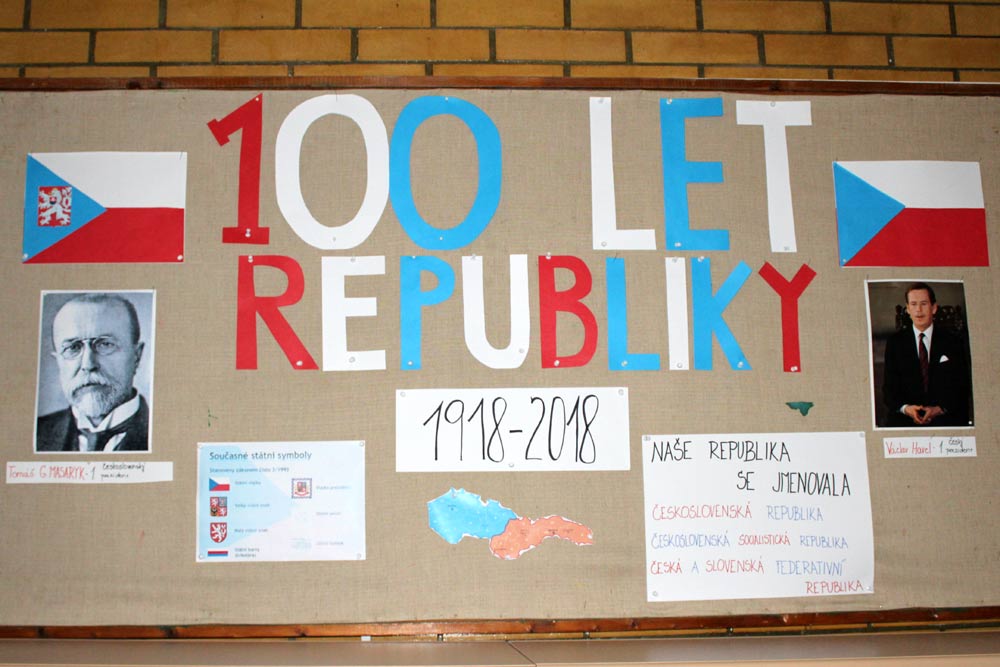 100 LET
REPUBLIKY
1918-2018
Tomáš G. MASARYK - 1. československý prezident
Václav Havel - 1. český prezident
Současné státní symboly
Stanoveny zákonem číslo 3/1993
Státní vlajka
Velký státní znak
Malý státní znak
Státní barvy
(trikolóra)
Vlajka prezidenta
NAŠE REPUBLIKA
SE JMENOVALA
ČESKOSLOVENSKÁ REPUBLIKA
ČESKOSLOVENSKÁ SOCIALISTICKÁ REPUBLIKA
ČESKÁ A SLOVENSKÁ FEDERATIVNÍ
REPUBLIKA